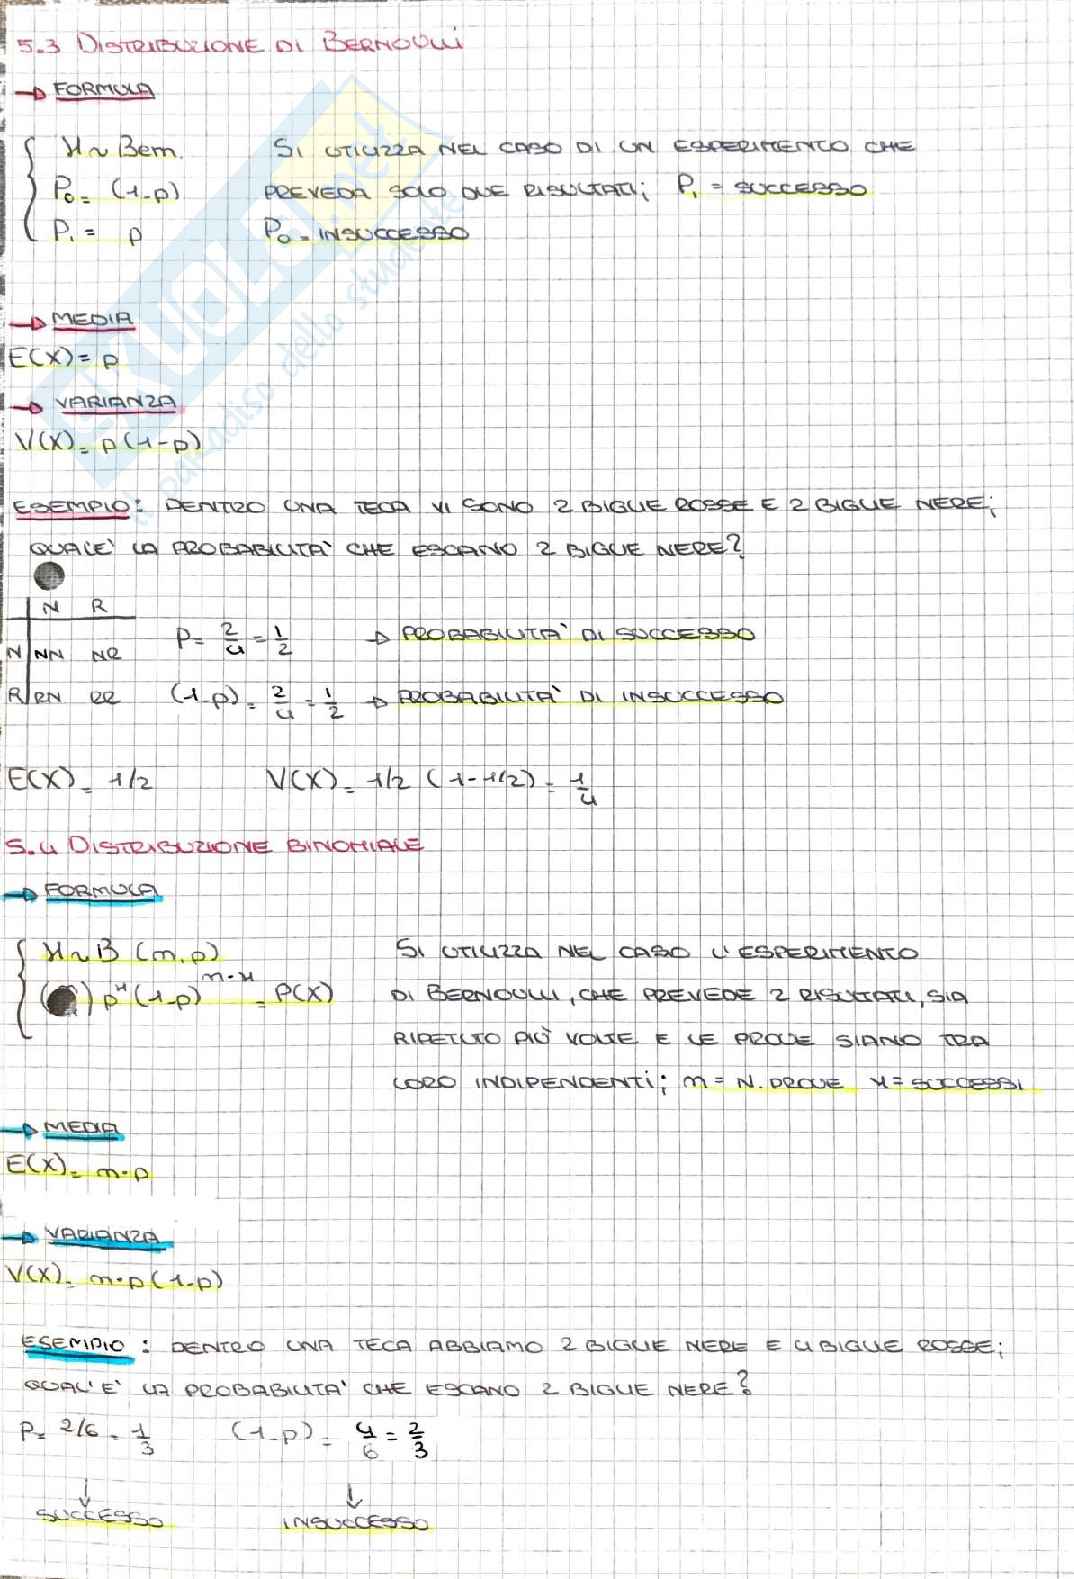 5.3 DISTRIBUZIONE DI BERNOULLI
→ FORMULA
X ~ Bern. SI UTILIZZA NEL CASO DI UN ESPERIMENTO CHE
P₀ = (1-p) PREVEDA SOLO DUE RISULTATI; P₁ = SUCCESSO
P₁ = p P₀ = INSUCCESSO
→ MEDIA
E(X) = p
→ VARIANZA
V(X) = p(1-p)
ESEMPIO: DENTRO UNA TECA VI SONO 2 BIGLIE ROSSE E 2 BIGLIE NERE;
QUAL'E' LA PROBABILITA' CHE ESCANO 2 BIGLIE NERE?
N R
N NN NR P = 2/4 = 1/2 → PROBABILITA' DI SUCCESSO
R RN RR (1-p) = 2/4 = 1/2 → PROBABILITA' DI INSUCCESSO
E(X) = 1/2 V(X) = 1/2 (1-1/2) = 1/4
5.4 DISTRIBUZIONE BINOMIALE
→ FORMULA
X ~ B (n.p) SI UTILIZZA NEL CASO L'ESPERIMENTO
( ) pˣ (1-p)ⁿ⁻ˣ = P(X) DI BERNOULLI, CHE PREVEDE 2 RISULTATI, SIA
RIPETUTO PIÙ VOLTE E LE PROVE SIANO TRA
LORO INDIPENDENTI; n = N. PROVE x = SUCCESSI
→ MEDIA
E(X) = n·p
→ VARIANZA
V(X) = n·p(1-p)
ESEMPIO: DENTRO UNA TECA ABBIAMO 2 BIGLIE NERE E 4 BIGLIE ROSSE;
QUAL'E' LA PROBABILITA' CHE ESCANO 2 BIGLIE NERE?
P = 2/6 = 1/3 (1-p) = 4/6 = 2/3
↓ ↓
SUCCESSO INSUCCESSO
SKUOLA.net
paradiso dello studente